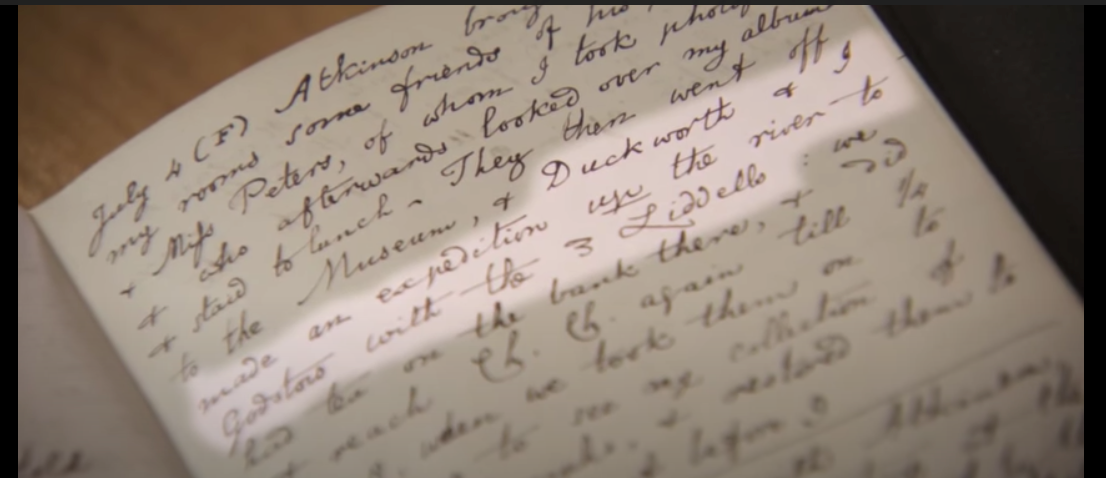 Atkinson
July 4 (F)
my rooms some friends of his
& Miss Peters, of whom I took photo
& who afterwards looked over my album
& staid to lunch. They then went off
to the Museum, & Duckworth & I
made an expedition up the river to
Godstow with the 3 Liddells : we
had tea on the bank there, & did
reach Ch. Ch. again till 1/4 to
when we took them on to
to see my collection of
& restored them to
before